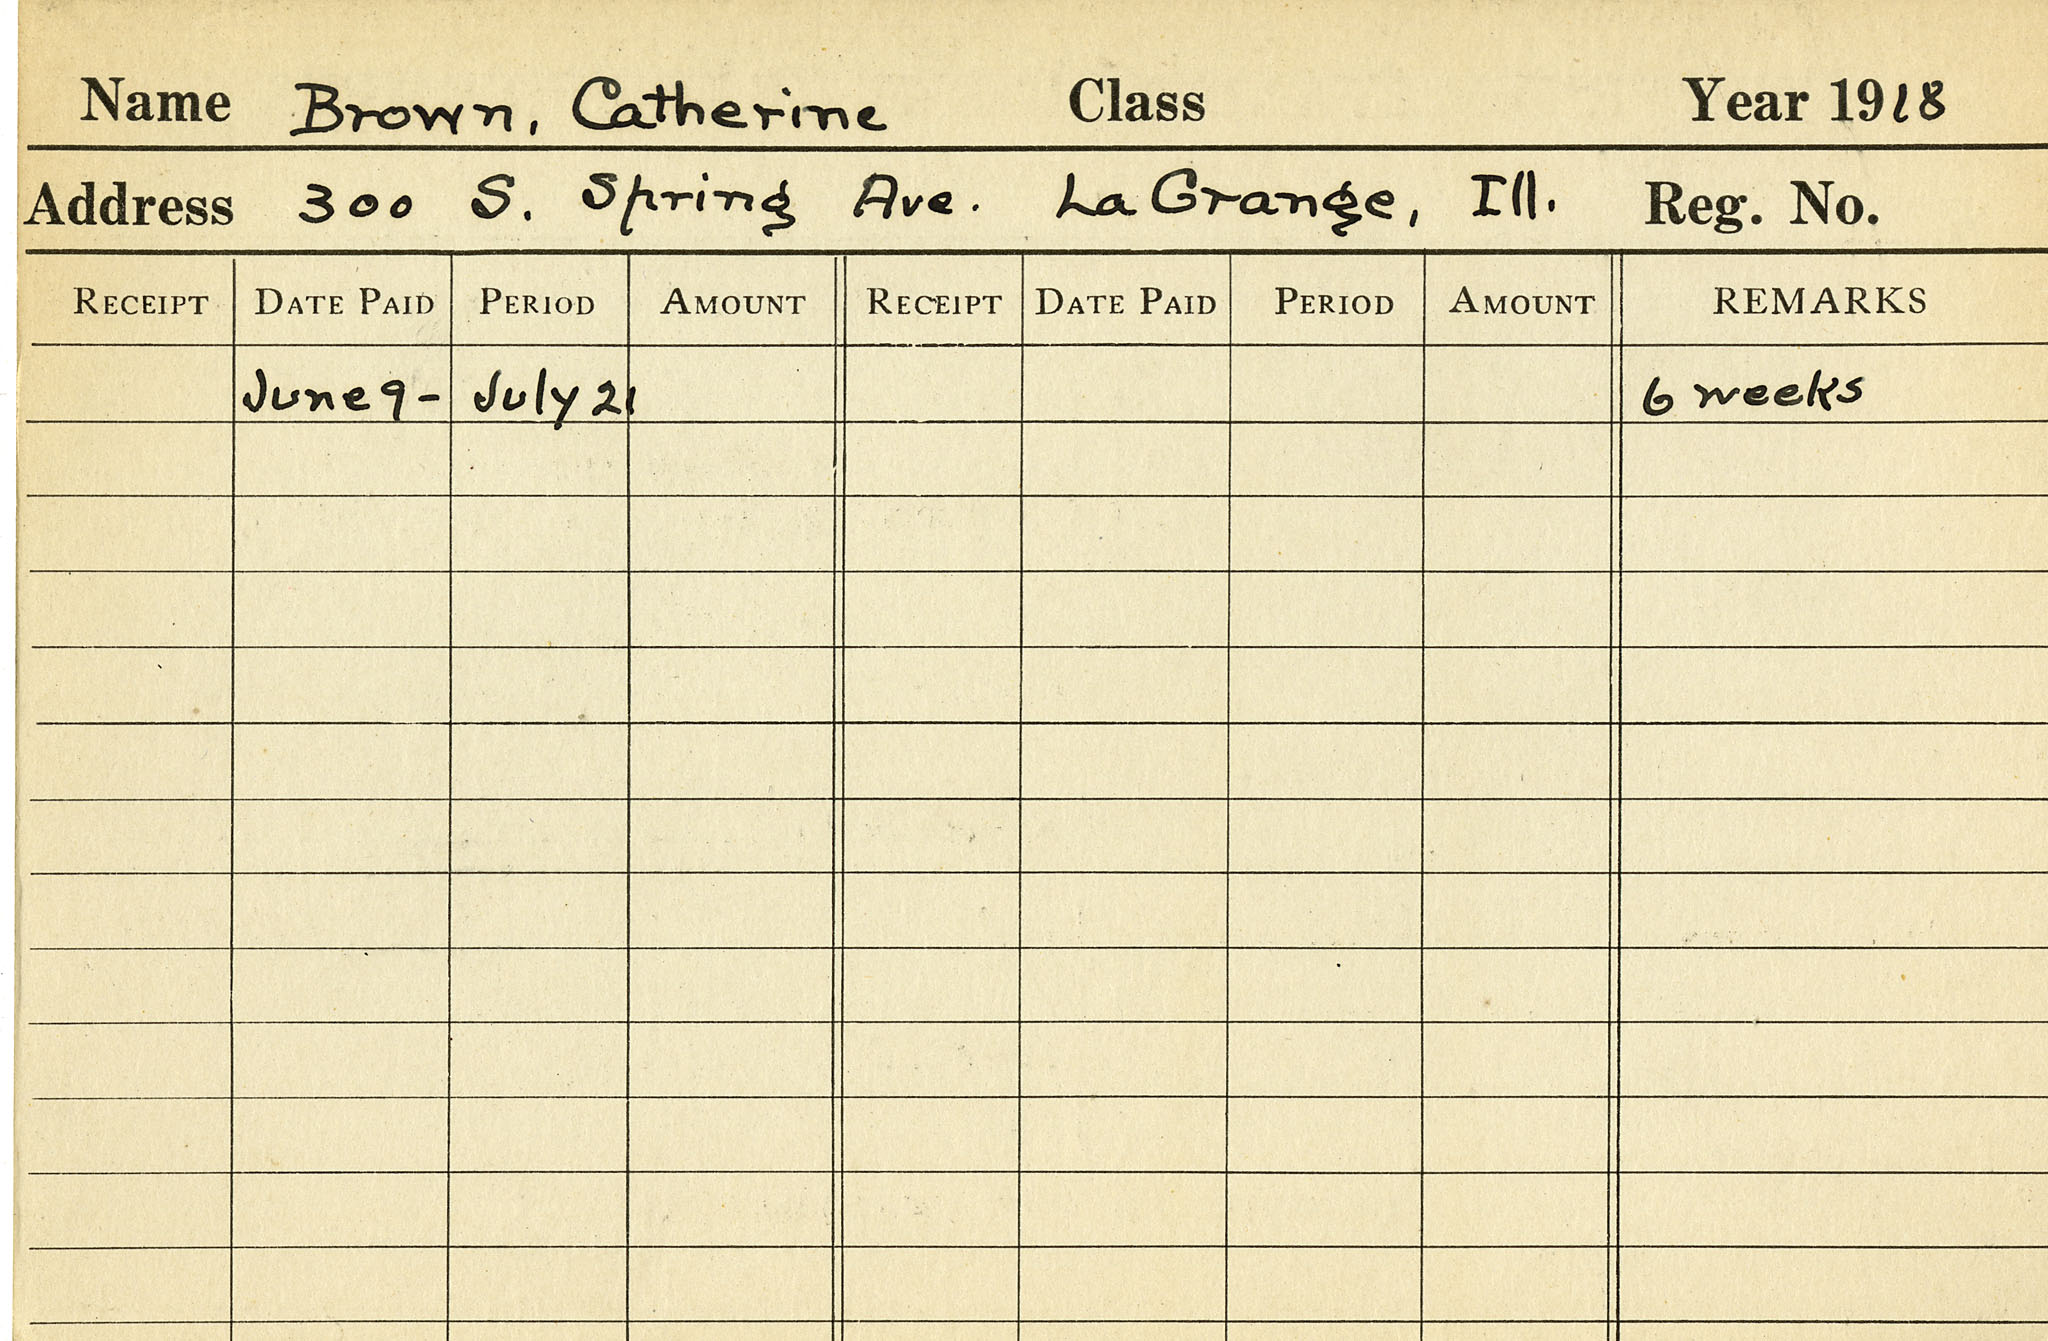 Name Brown, Catherine Class Year 1918
Address 300 S. Spring Ave. La Grange, Ill. Reg. No.
RECEIPT DATE PAID PERIOD AMOUNT RECEIPT DATE PAID PERIOD AMOUNT REMARKS
June 9 - July 21 6 weeks